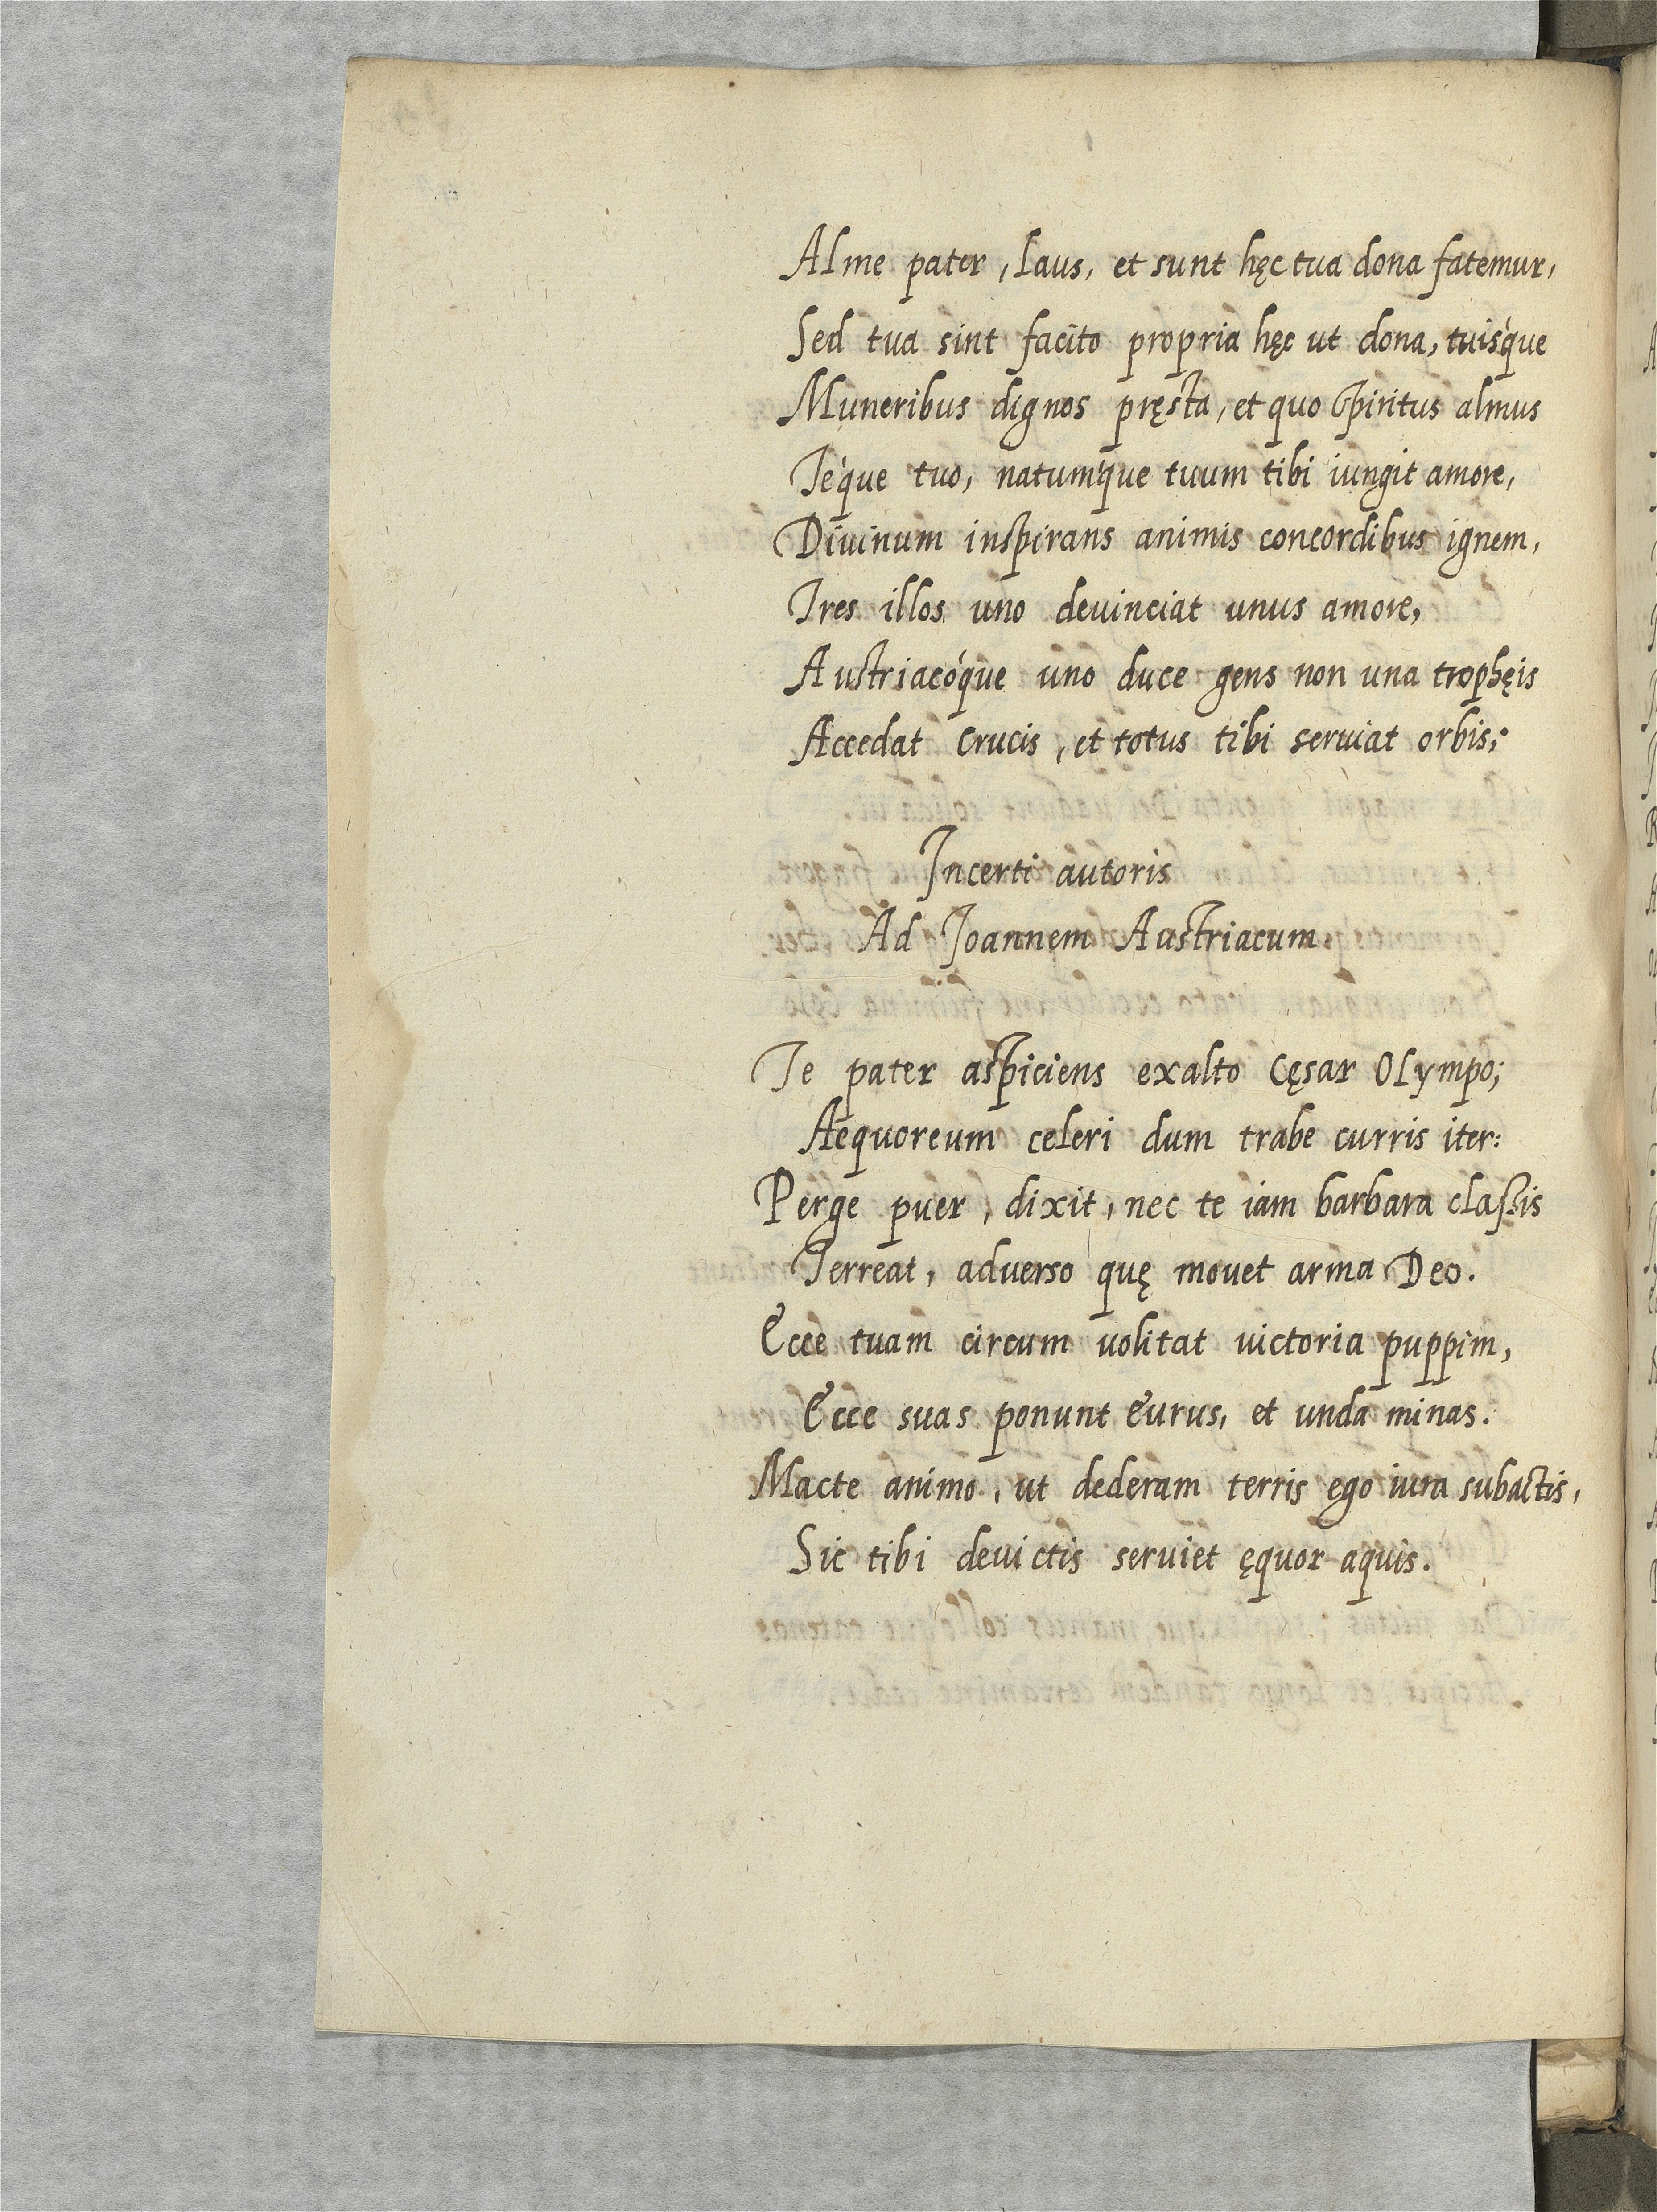 Alme pater, laus, et sunt hęc tua dona fatemur,
Sed tua sint facito propria hęc ut dona, tuisq́ue
Muneribus dignos pręsta, et quo Spiritus almus
Teq́ue tuo, natumq́ue tuum tibi iungit amore,
Diuinum inspirans animis concordibus ignem,
Tres illos uno deuinciat unus amore,
Austriacoq́ue uno duce gens non una trophęis
Accedat Crucis, et totus tibi seruiat orbis;
Incerti autoris
Ad Joannem Austriacum.
Te pater aspiciens exalto Cęsar Olympo;
Aequoreum celeri dum trabe curris iter:
Perge puer, dixit, nec te iam barbara classis
Terreat, aduerso quę mouet arma Deo.
Ecce tuam circum uolitat uictoria puppim,
Ecce suas ponunt Eurus, et unda minas.
Macte animo, ut dederam terris ego iura subactis,
Sic tibi deuictis seruiet ęquor aquis.